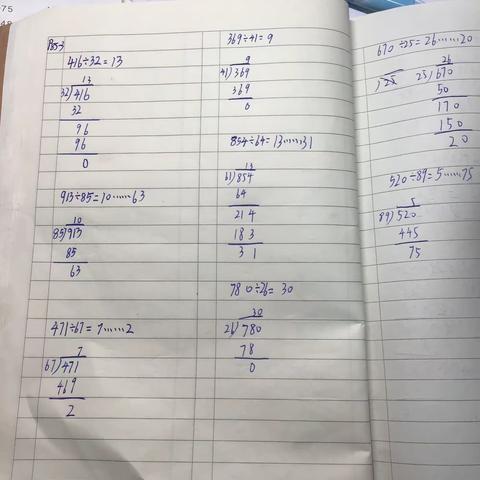 P85-3
416÷32=13
13
32)416
32
96
96
0
913÷85=10……63
10
85)913
85
63
471÷67=7……2
7
67)471
469
2
369÷41=9
9
41)369
369
0
854÷64=13……31
13
61)854
64
214
183
31
780÷26=30
30
26)780
78
0
670÷25=26……20
26
25)670
50
170
150
20
520÷89=5……75
5
89)520
445
75